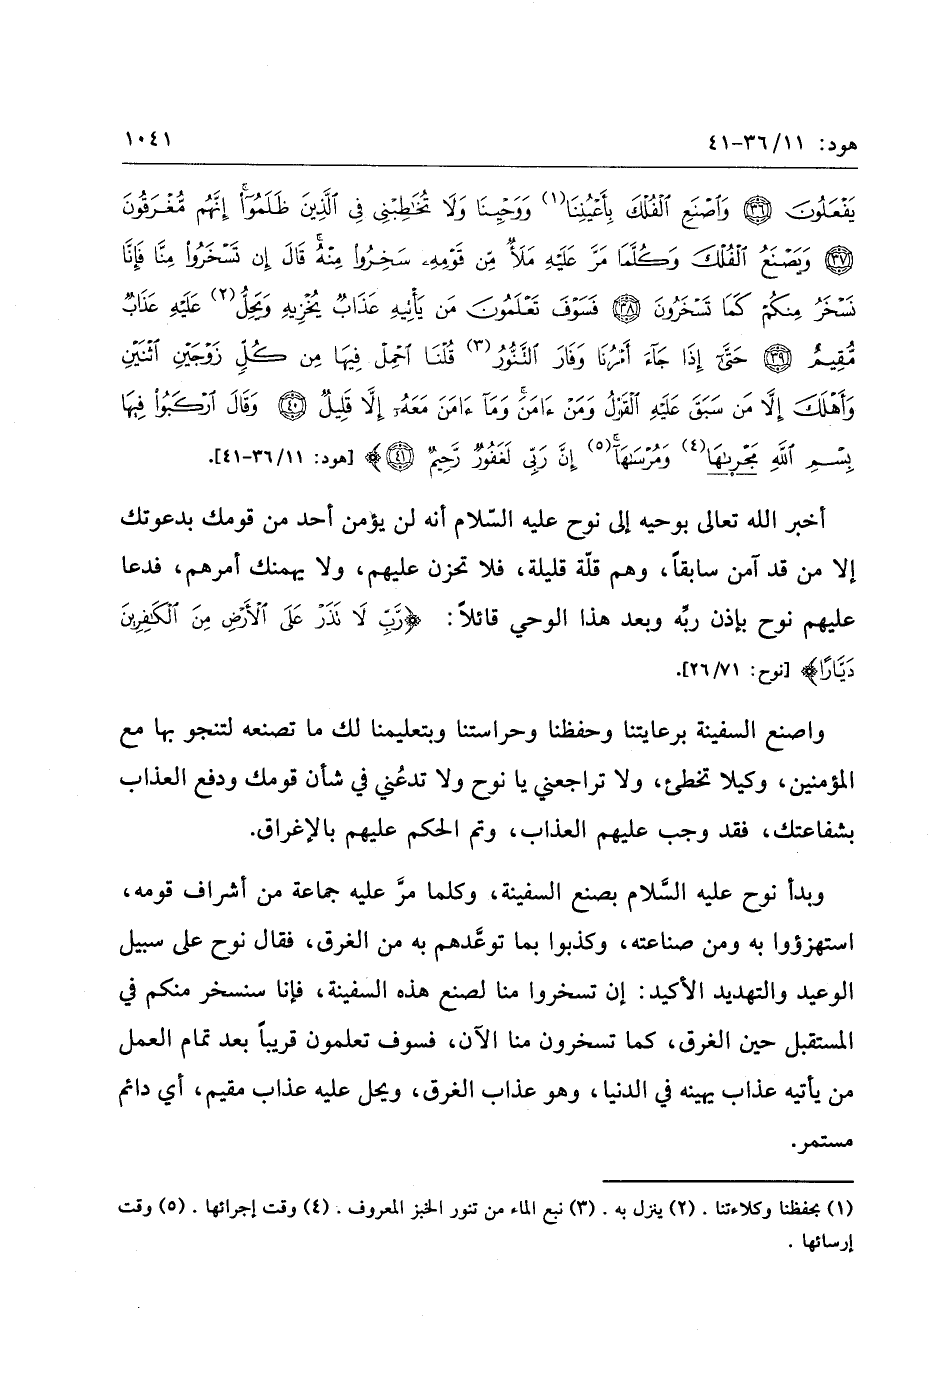 هود: ١١/ ٣٦-٤١ ١٠٤١
يَفْعَلُونَ ﴿٣٦﴾ وَٱصْنَعِ ٱلْفُلْكَ بِأَعْيُنِنَا(١) وَوَحْيِنَا وَلَا تُخَٰطِبْنِى فِى ٱلَّذِينَ ظَلَمُوٓا۟ۚ إِنَّهُم مُّغْرَقُونَ
﴿٣٧﴾ وَيَصْنَعُ ٱلْفُلْكَ وَكُلَّمَا مَرَّ عَلَيْهِ مَلَأٌ مِّن قَوْمِهِۦ سَخِرُوا۟ مِنْهُۚ قَالَ إِن تَسْخَرُوا۟ مِنَّا فَإِنَّا
نَسْخَرُ مِنكُمْ كَمَا تَسْخَرُونَ ﴿٣٨﴾ فَسَوْفَ تَعْلَمُونَ مَن يَأْتِيهِ عَذَابٌ يُخْزِيهِ وَيَحِلُّ(٢) عَلَيْهِ عَذَابٌ
مُّقِيمٌ ﴿٣٩﴾ حَتَّىٰٓ إِذَا جَآءَ أَمْرُنَا وَفَارَ ٱلتَّنُّورُ(٣) قُلْنَا ٱحْمِلْ فِيهَا مِن كُلٍّ زَوْجَيْنِ ٱثْنَيْنِ
وَأَهْلَكَ إِلَّا مَن سَبَقَ عَلَيْهِ ٱلْقَوْلُ وَمَنْ ءَامَنَۚ وَمَآ ءَامَنَ مَعَهُۥٓ إِلَّا قَلِيلٌ ﴿٤٠﴾ وَقَالَ ٱرْكَبُوا۟ فِيهَا
بِسْمِ ٱللَّهِ مَجْر۪ىٰهَا(٤) وَمُرْسَىٰهَآۚ(٥) إِنَّ رَبِّى لَغَفُورٌ رَّحِيمٌ ﴿٤١﴾﴾ [هود: ١١/ ٣٦-٤١].
أخبر الله تعالى بوحيه إلى نوح عليه السّلام أنه لن يؤمن أحد من قومك بدعوتك
إلا من قد آمن سابقاً، وهم قلّة قليلة، فلا تحزن عليهم، ولا يهمنك أمرهم، فدعا
عليهم نوح بإذن ربِّه وبعد هذا الوحي قائلاً: ﴿رَّبِّ لَا تَذَرْ عَلَى ٱلْأَرْضِ مِنَ ٱلْكَٰفِرِينَ
دَيَّارًا﴾ [نوح: ٧١/ ٢٦].
واصنع السفينة برعايتنا وحفظنا وحراستنا وبتعليمنا لك ما تصنعه لتنجو بها مع
المؤمنين، وكيلا تخطئ، ولا تراجعني يا نوح ولا تدعُني في شأن قومك ودفع العذاب
بشفاعتك، فقد وجب عليهم العذاب، وتم الحكم عليهم بالإغراق.
وبدأ نوح عليه السَّلام بصنع السفينة، وكلما مرَّ عليه جماعة من أشراف قومه،
استهزؤوا به ومن صناعته، وكذبوا بما توعَّدهم به من الغرق، فقال نوح على سبيل
الوعيد والتهديد الأكيد: إن تسخروا منا لصنع هذه السفينة، فإنا سنسخر منكم في
المستقبل حين الغرق، كما تسخرون منا الآن، فسوف تعلمون قريباً بعد تمام العمل
من يأتيه عذاب يهينه في الدنيا، وهو عذاب الغرق، ويحل عليه عذاب مقيم، أي دائم
مستمر.
(١) بحفظنا وكلاءتنا . (٢) ينزل به . (٣) نبع الماء من تنور الخبز المعروف . (٤) وقت إجرائها . (٥) وقت
إرسائها .